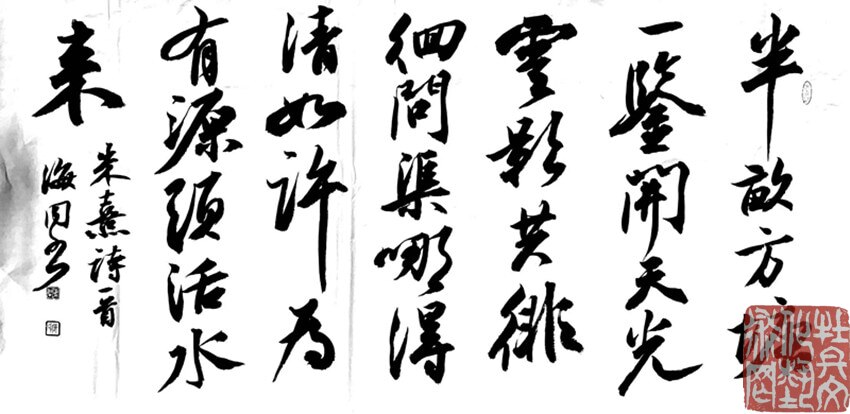 半畝方塘
一鑒開天光
雲影共徘
徊問渠哪得
清如許為
有源頭活水
来
朱熹詩一首